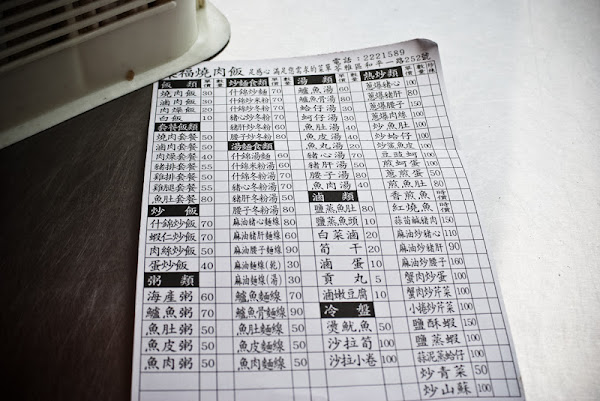 電話:2221589
福燒肉飯 是感心滿足您需求的菜單 苓雅區和平一路252號
飯類 單價 數量
燒肉飯 30
滷肉飯 30
肉燥飯 20
白飯 10
套餐飯類
燒肉套餐 50
滷肉套餐 50
肉燥套餐 40
豬排套餐 55
雞排套餐 55
雞腿套餐 55
魚肚套餐 80
炒飯
什錦炒飯 70
蝦仁炒飯 50
肉絲炒飯 50
蛋炒飯 40
粥類
海產粥 60
鱸魚粥 70
魚肚粥 50
魚皮粥 50
魚肉粥 50
炒麵食類 單價 數量
什錦炒麵 70
什錦炒冬粉 70
豬心炒冬粉
豬肝炒冬粉
腰子炒冬粉 80
湯麵食類
什錦湯麵 60
什錦冬粉湯
豬心冬粉湯
豬肝冬粉湯 50
腰子冬粉湯 80
麻油豬心麵線
麻油豬肝麵線
麻油腰子麵線
麻油麵線(乾) 30
麻油麵線(湯) 30
鱸魚麵線 70
鱸魚骨麵線 90
魚肚麵線 50
魚皮麵線 50
魚肉麵線 50
湯類 單價 數量
鱸魚湯
鱸魚骨湯 80
蛤仔湯
蚵仔湯
魚肚湯 40
魚皮湯 40
魚丸湯 20
豬心湯
豬肝湯
腰子湯
魚肉湯 40
滷類
鹽蒸魚肚
鹽蒸魚頭
白菜滷 20
筍干 20
滷蛋 10
貢丸 5
滷嫩豆腐 10
冷盤
燙魷魚 50
沙拉筍 100
沙拉小卷 100
熱炒類 單價 數量
蔥爆豬心 100
蔥爆豬肝
蔥爆腰子 150
蔥爆肉絲 100
炒魚肚 100
炒蛤仔 100
炒薑魚皮 100
豆豉蚵 100
煎蚵蛋 100
蔥煎蛋 50
煎魚肚 80
香煎魚 時價
紅燒魚 時價
蒜苗鹹豬肉 150
麻油炒豬心 110
麻油炒豬肝
麻油炒腰子 160
蟹肉炒蛋 100
蟹肉炒芹菜 100
小捲炒芹菜 100
鹽酥蝦 150
胡椒蝦 150
蒜泥蒸蛤仔 100
炒青菜 50
炒山蘇 100